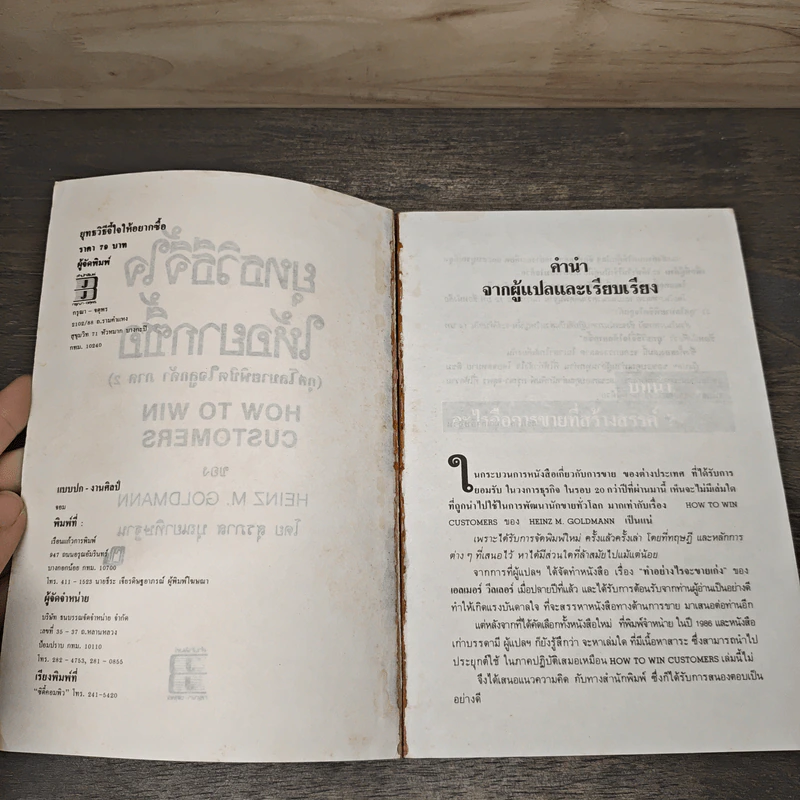 ยุทธวิธีจี้ใจให้อยากซื้อ
ราคา 79 บาท
ผู้จัดพิมพ์
ดรุณา - จตุพร
2102/88 ถ.รามคำแหง
สุขุมวิท 71 หัวหมาก บางกะปิ
กทม. 10240
ยุทธวิธีจี้ใจ
ให้อยากซื้อ
(กุศโลบายพิชิตใจลูกค้า ภาค 2)
HOW TO WIN
CUSTOMERS
ของ
HEINZ M. GOLDMANN
โดย สุรกาส บุรณาพิษฐาน
แบบปก - งานศิลป์
จอม
พิมพ์ที่ :
เรือนแก้วการพิมพ์
947 ถนนอรุณอัมรินทร์
บางกอกน้อย กทม. 10700
โทร. 411 - 1523 นายธีระ เจียรดิษฐอาภรณ์ ผู้พิมพ์โฆษณา
ผู้จัดจำหน่าย
บริษัท ธนบรรณจัดจำหน่าย จำกัด
เลขที่ 35 - 37 ถ.หลานหลวง
ป้อมปราบ กทม. 10110
โทร. 282 - 4753, 281 - 0855
เรียงพิมพ์ที่
"ซิตี้คอมพิว" โทร. 241-5420
คำนำ
จากผู้แปลและเรียบเรียง
บทนำ
อะไรคือการขายที่สร้างสรรค์ ?
ในกระบวนการหนังสือเกี่ยวกับการขาย ของต่างประเทศ ที่ได้รับการ
ยอมรับ ในวงการธุรกิจ ในรอบ 20 กว่าปีที่ผ่านมานี้ เห็นจะไม่มีเล่มใด
ที่ถูกนำไปใช้ในการพัฒนานักขายทั่วโลก มากเท่ากับเรื่อง HOW TO WIN
CUSTOMERS ของ HEINZ M. GOLDMANN เป็นแน่
เพราะได้รับการจัดพิมพ์ใหม่ ครั้งแล้วครั้งเล่า โดยที่ทฤษฎี และหลักการ
ต่าง ๆ ที่เสนอไว้ หาได้มีส่วนใดที่ล้าสมัยไปแม้แต่น้อย
จากการที่ผู้แปลฯ ได้จัดทำหนังสือ เรื่อง "ทำอย่างไรจะขายเก่ง" ของ
เอลเมอร์ วีลเลอร์ เมื่อปลายปีที่แล้ว และได้รับการต้อนรับจากท่านผู้อ่านเป็นอย่างดี
ทำให้เกิดแรงบันดาลใจ ที่จะสรรหาหนังสือทางด้านการขาย มาเสนอต่อท่านอีก
แต่หลังจากที่ได้คัดเลือกทั้งหนังสือใหม่ ที่พิมพ์จำหน่าย ในปี 1986 และหนังสือ
เก่าบรรดามี ผู้แปลฯ ก็ยังรู้สึกว่า จะหาเล่มใด ที่มีเนื้อหาสาระ ซึ่งสามารถนำไป
ประยุกต์ใช้ ในภาคปฏิบัติเสมอเหมือน HOW TO WIN CUSTOMERS เล่มนี้ไม่
จึงได้เสนอแนวความคิด กับทางสำนักพิมพ์ ซึ่งก็ได้รับการสนองตอบเป็น
อย่างดี